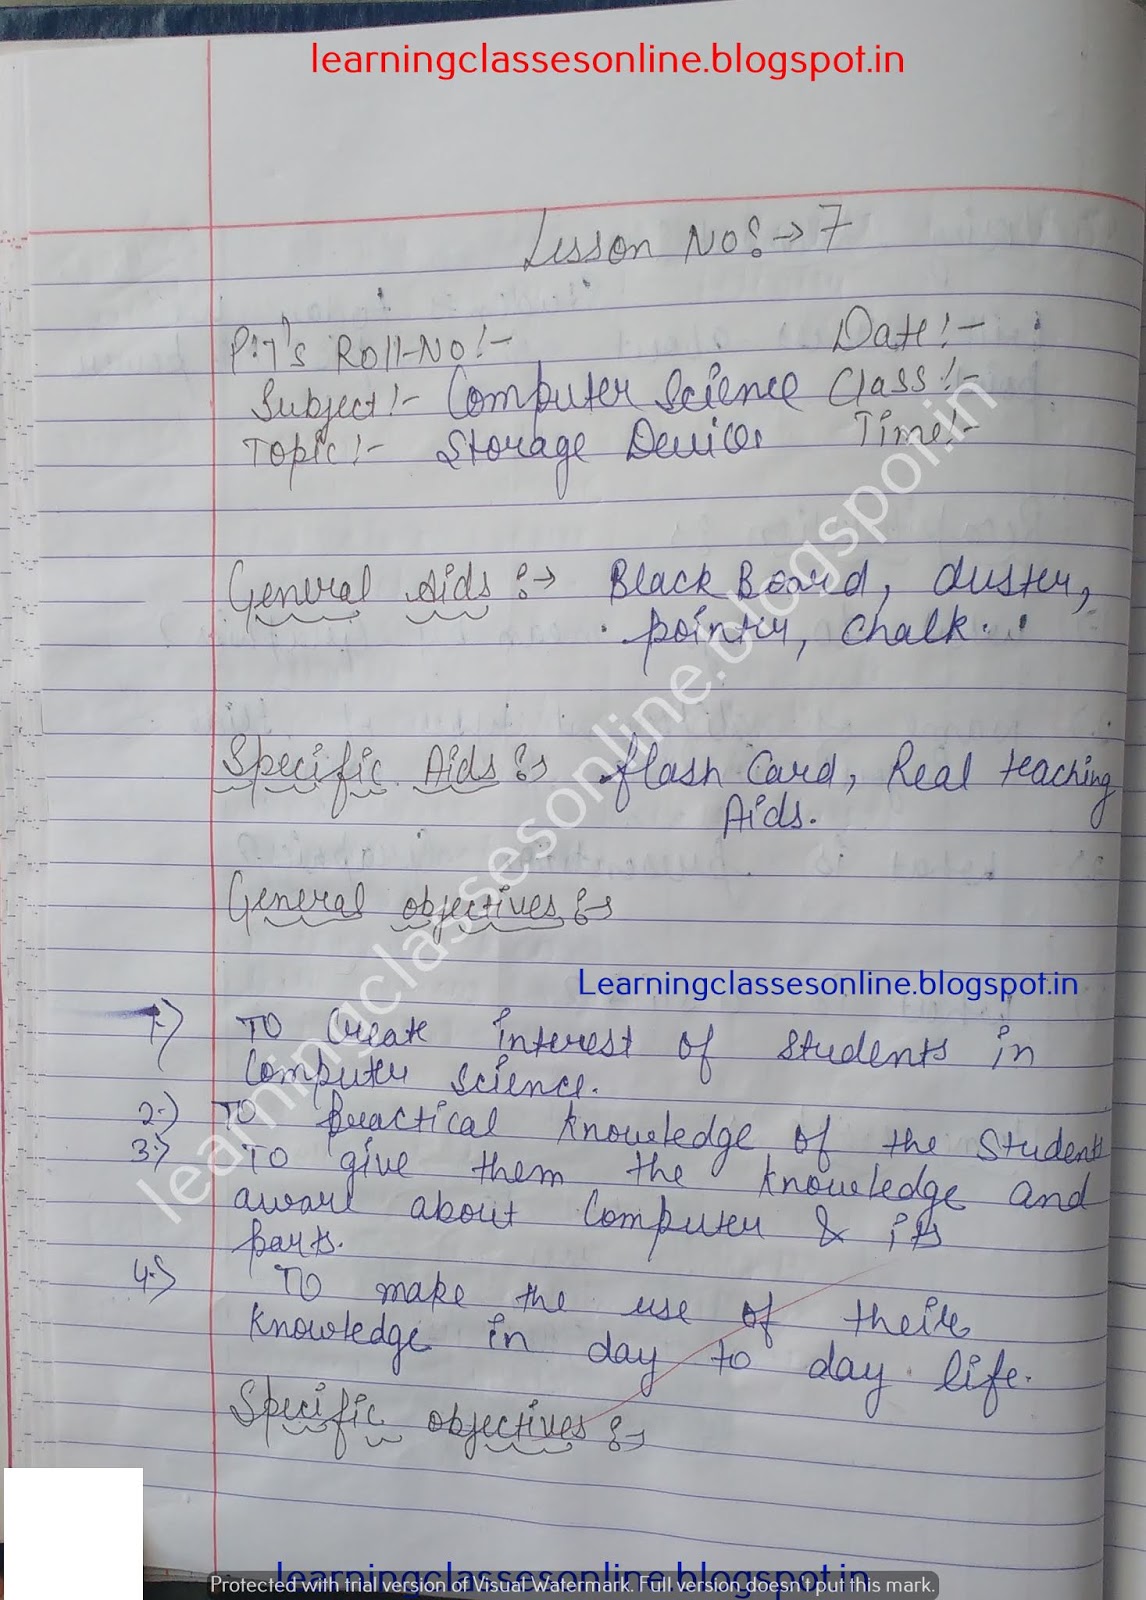 learningclassesonline.blogspot.in
Lesson No:→ 7
P.T's Roll-No!- Date!-
Subject!- Computer Science Class!-
Topic!- Storage Device Time!-
General Aids :→ Black Board, duster,
pointer, chalk.
Specific Aids :→ flash Card, Real teaching
Aids.
General objectives :→
Learningclassesonline.blogspot.in
1.) To Create interest of students in
Computer science.
2.) To practical knowledge of the student
3.) To give them the knowledge and
aware about Computer & its
parts.
4.) To make the use of their
knowledge in day to day life.
Specific objectives :→
learningclassesonline.blogspot.in
learningclassesonline.blogspot.in
Protected with trial version of Visual Watermark. Full version doesn't put this mark.